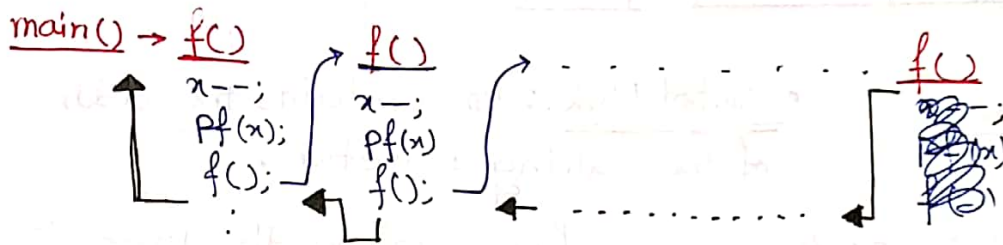 main() → f()
x--;
Pf(x);
f();
:
f()
x—;
Pf(x)
f();
. . . . . . . .
f()
. . . . . . . .